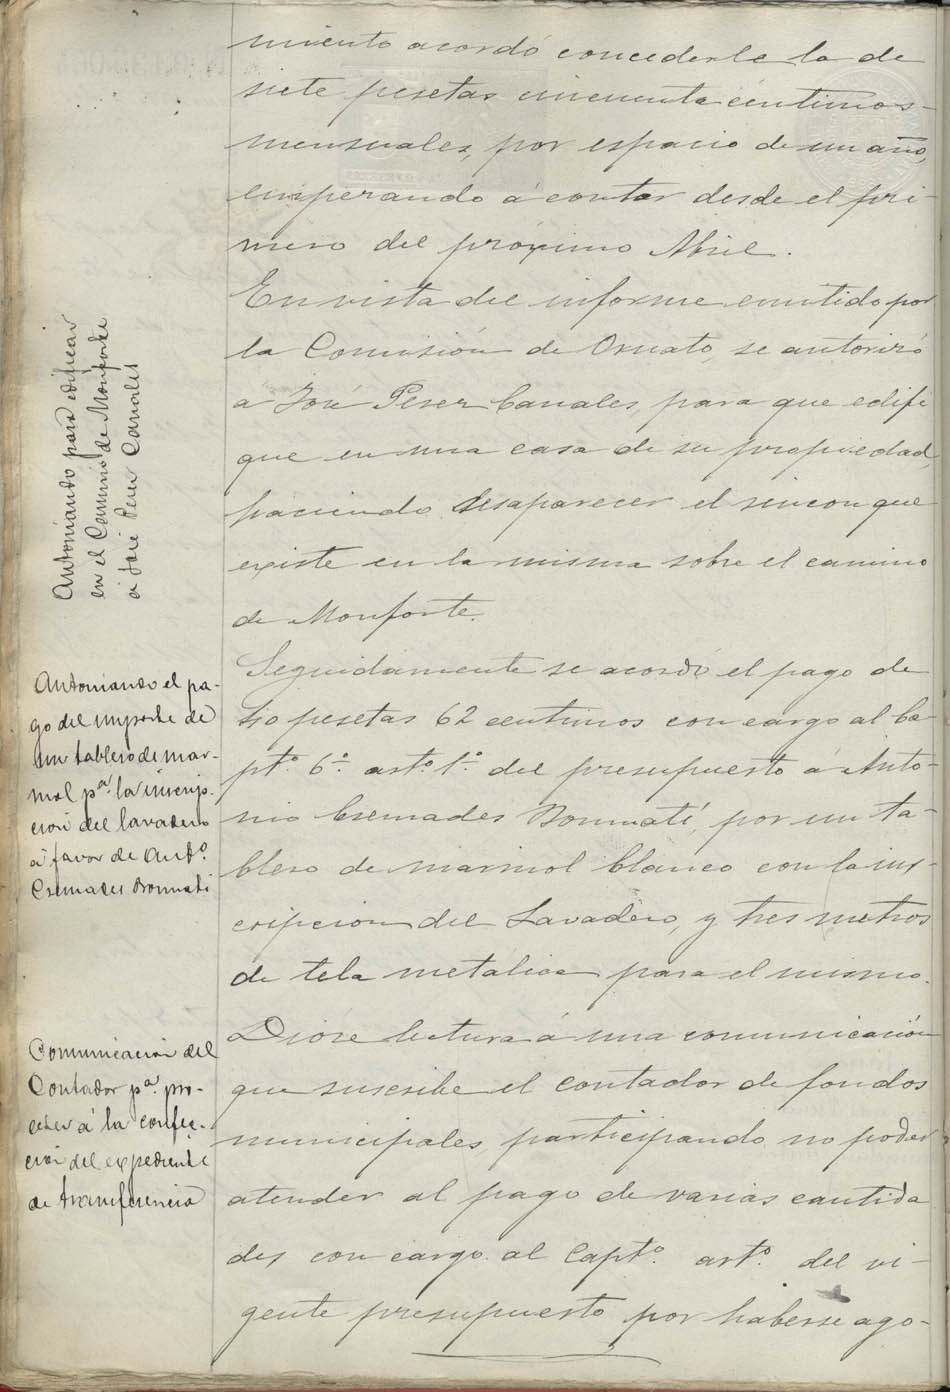 miento acordó concederle la de
siete pesetas cincuenta céntimos
mensuales, por espacio de un año,
empezando á contar desde el pri-
mero del próximo Abril.
Autorizando para edificar
en el Camino de Monforte
á José Perez Canales
En vista del informe emitido por
la Comisión de Ornato, se autorizó
a José Perez Canales, para que edifi
que en una casa de su propiedad,
haciendo desaparecer el rincon que
existe en la misma sobre el camino
de Monforte.
Autorizando el pa-
go del importe de
un tablero de mar-
mol pª. la inscrip-
cion del lavadero
a favor de Antº.
Cremades Bonmati
Seguidamente se acordó el pago de
pesetas 62 centimos con cargo al Ca-
ptº. 6º. artº. 1º. del presupuesto á Anto-
nio Cremades Bonmatí, por un ta-
blero de marmol blanco con la ins-
cripcion del Lavadero, y tres metros
de tela metalica para el mismo.
Comunicacion del
Contador pª. pro-
ceder á la confec-
cion del expediente
de transferencia
Dióse lectura á una comunicación
que suscribe el contador de fondos
municipales, participando no poder
atender al pago de varias cantida
des con cargo al Captº. artº. del vi-
gente presupuesto por haberse ago-